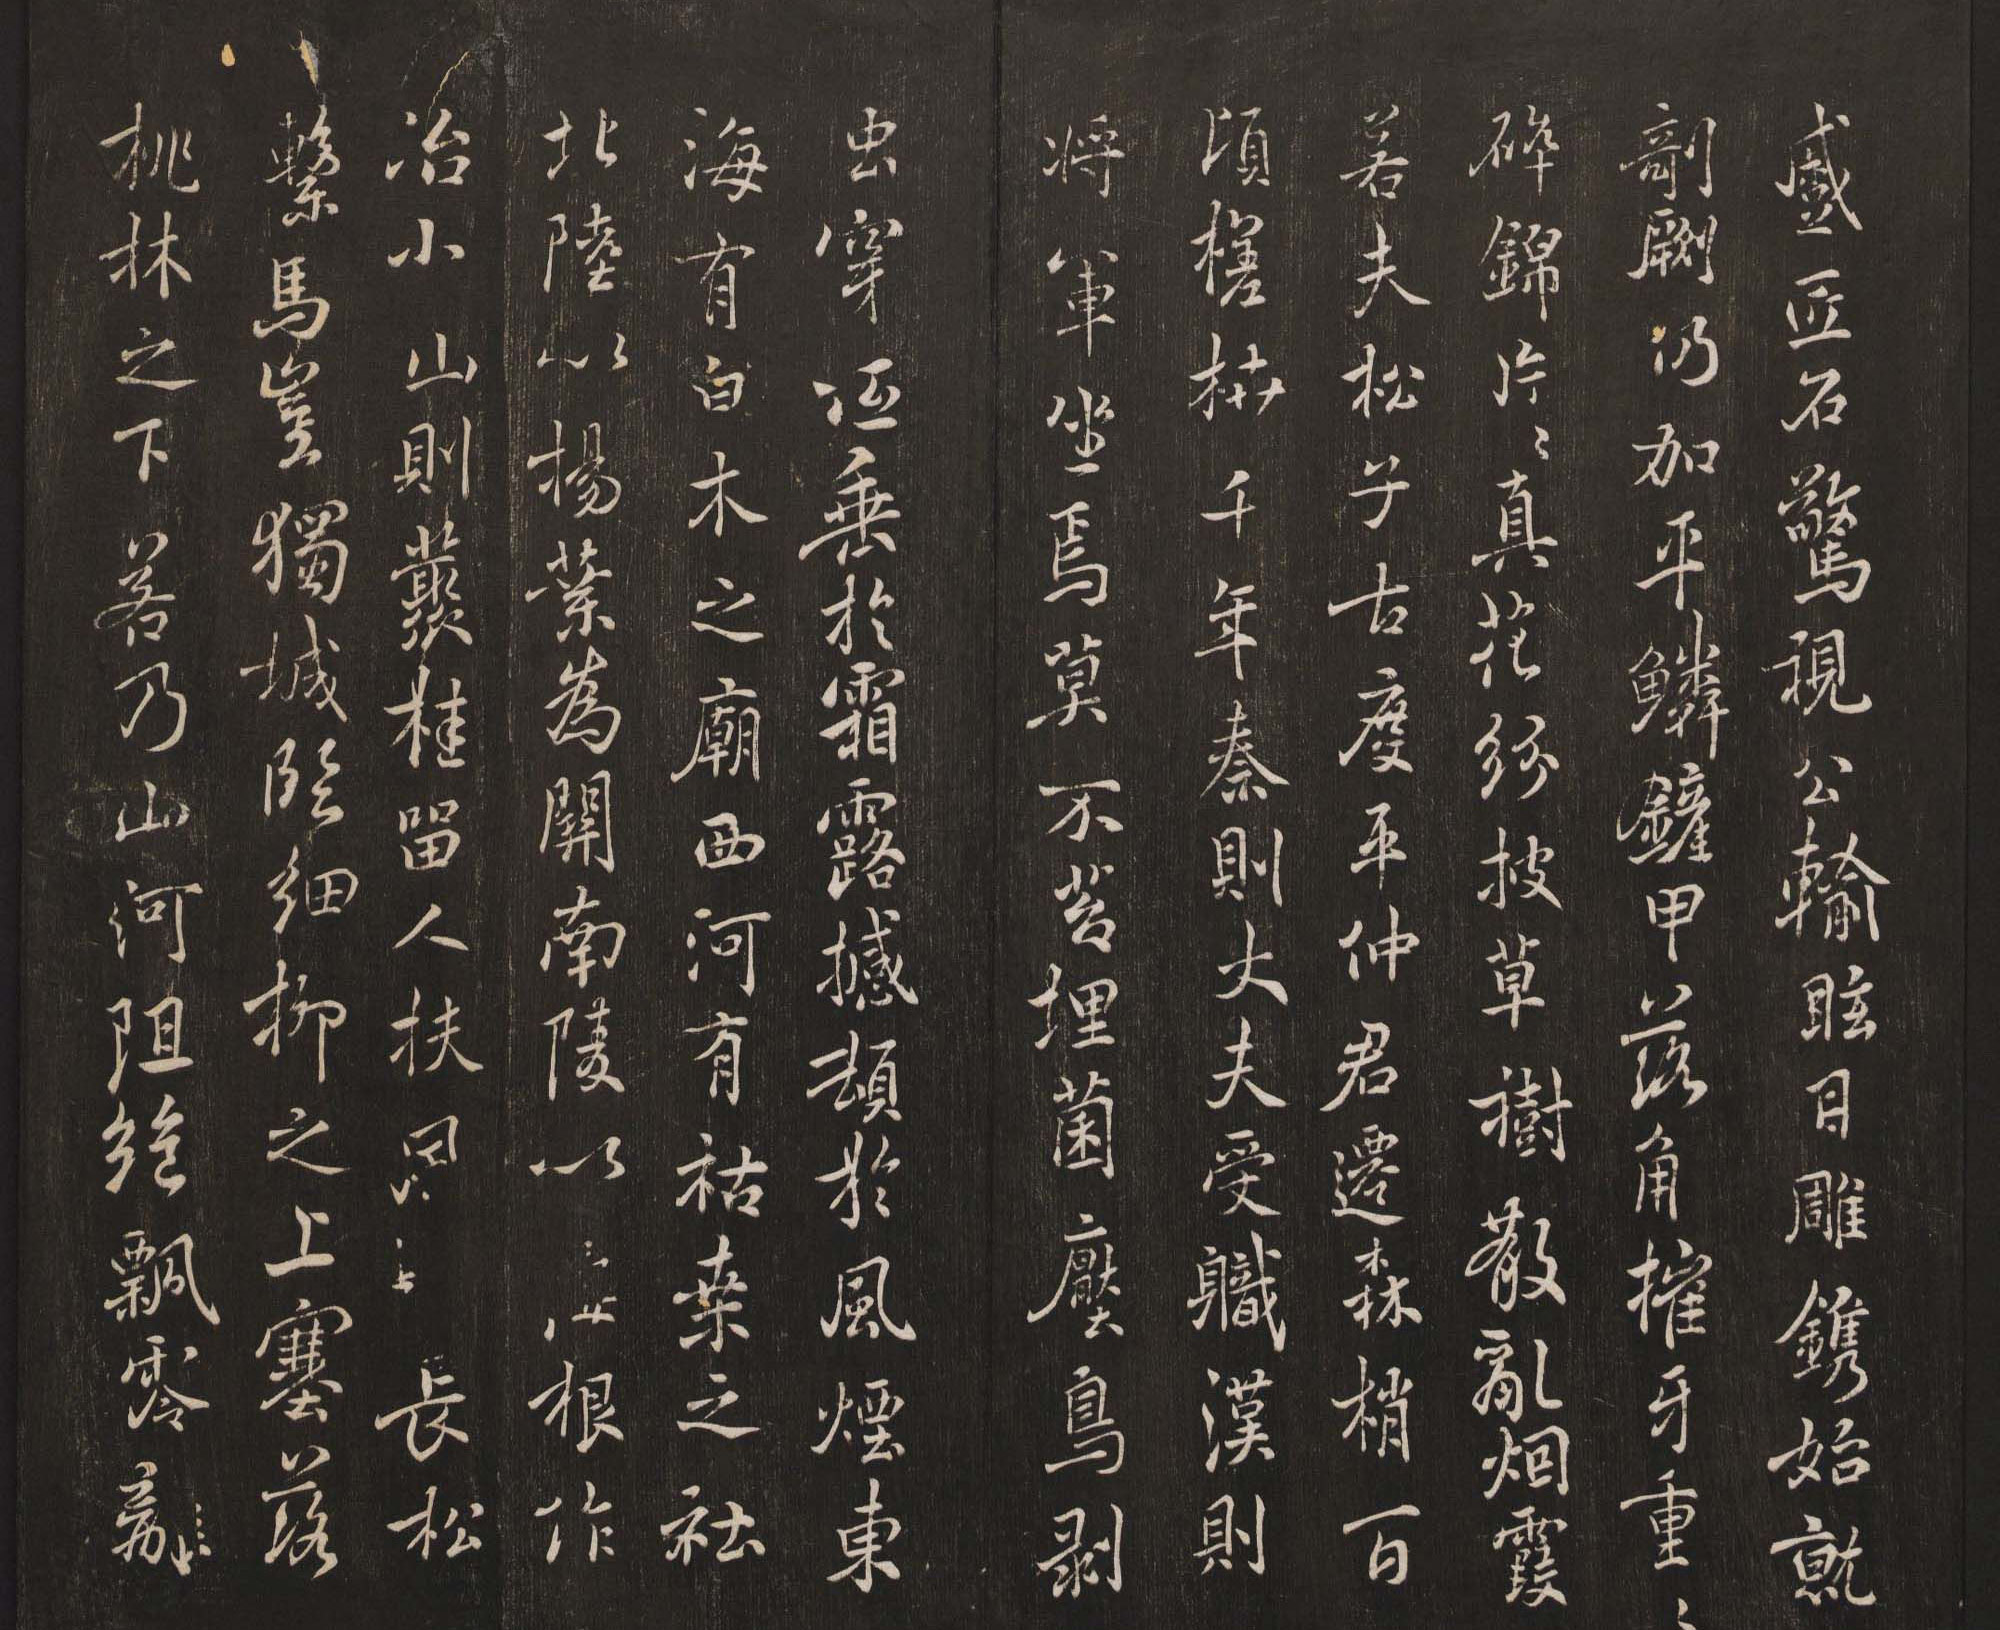 盛匠石驚視公輸眩目雕鐫始就
剞劂仍加平鱗鏟甲落角摧牙重〻
碎錦片〻真花紛披草樹散亂烟霞
若夫松子古度平仲君遷森梢百
頃槎枿千年秦則大夫受職漢則
將軍坐焉莫不苔埋菌壓鳥剥
虫穿低垂於霜露撼頓於風煙東
海有白木之廟西河有枯桒之社
北陸以楊葉為關南陵以梅根作
冶小山則叢桂留人扶風則長松
繋馬豈獨城臨細柳之上塞落
桃林之下若乃山河阻絶飄零離